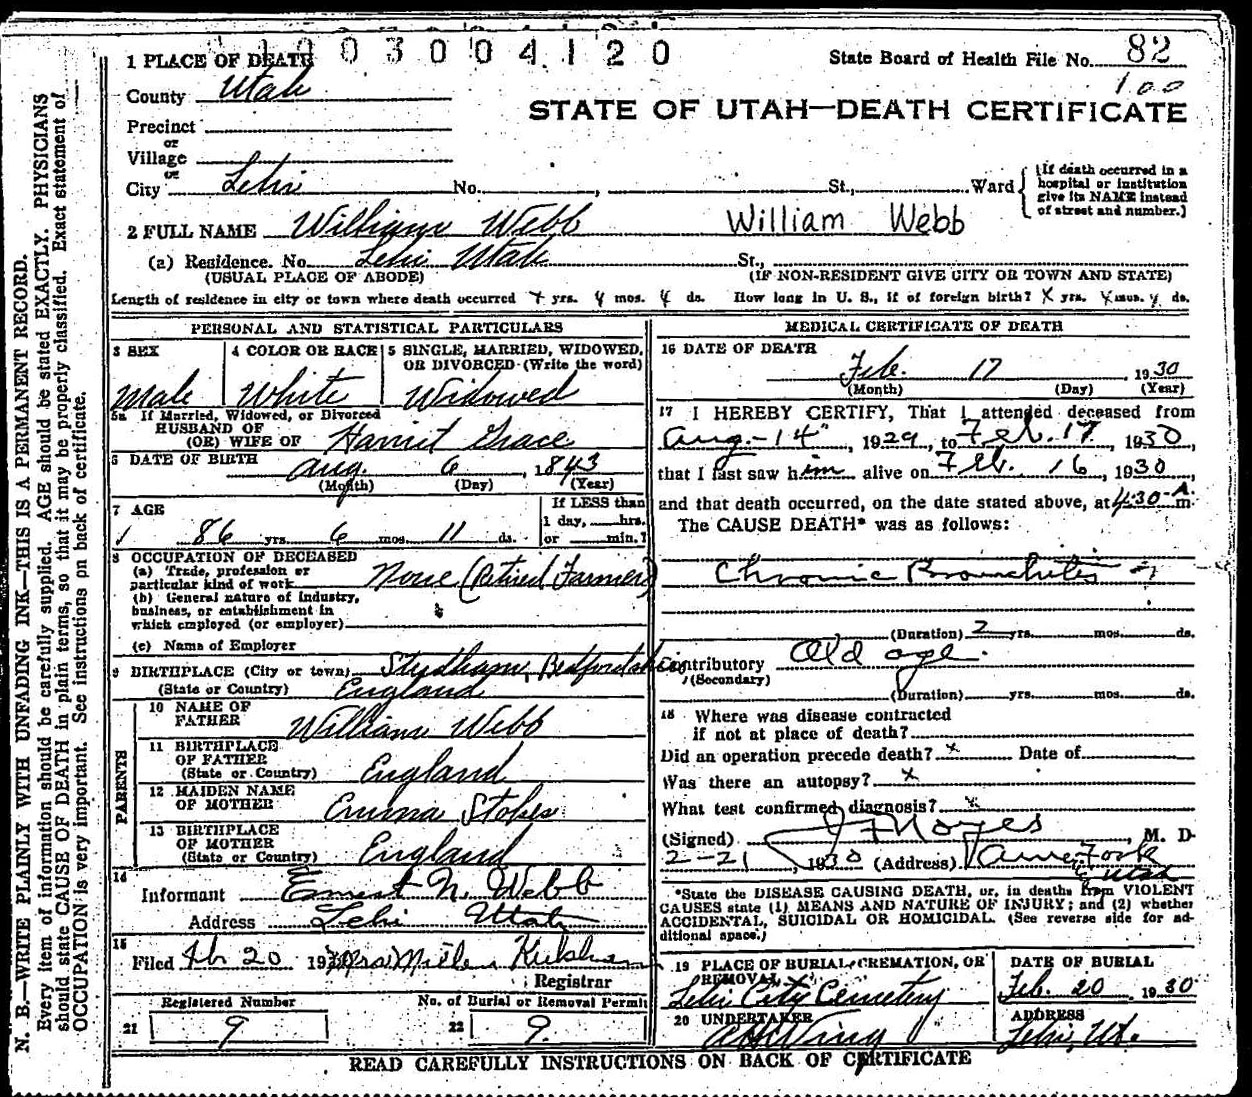 1003004120
1 PLACE OF DEATH
State Board of Health File No. 82
100
County Utah
STATE OF UTAH—DEATH CERTIFICATE
Precinct
or
Village
or
City Lehi No. , St., Ward
(If death occurred in a hospital or institution give its NAME instead of street and number.)
2 FULL NAME William Webb William Webb
(a) Residence. No. Lehi Utah St.,
(USUAL PLACE OF ABODE) (IF NON-RESIDENT GIVE CITY OR TOWN AND STATE)
Length of residence in city or town where death occurred yrs. mos. ds. How long in U. S., if of foreign birth? x yrs. mos. ds.
PERSONAL AND STATISTICAL PARTICULARS
3 SEX 4 COLOR OR RACE 5 SINGLE, MARRIED, WIDOWED, OR DIVORCED (Write the word)
Male White Widowed
5a If Married, Widowed, or Divorced
HUSBAND OF
(OR) WIFE OF Harriet Grace
6 DATE OF BIRTH Aug. 6, 1843
(Month) (Day) (Year)
7 AGE If LESS than
1 day, hrs.
86 yrs. 6 mos. 11 ds. or min.?
8 OCCUPATION OF DECEASED
(a) Trade, profession or
particular kind of work None (Retired Farmer)
(b) General nature of industry,
business, or establishment in
which employed (or employer)
(c) Name of Employer
9 BIRTHPLACE (City or town) Studham, Bedfordshire
(State or Country) England
PARENTS
10 NAME OF
FATHER William Webb
11 BIRTHPLACE
OF FATHER
(State or Country) England
12 MAIDEN NAME
OF MOTHER Emma Stokes
13 BIRTHPLACE
OF MOTHER
(State or Country) England
14
Informant Ernest N. Webb
Address Lehi Utah
15
Filed Feb 20 19 Mrs
Registrar
Registered Number No. of Burial or Removal Permit
21 9 22 9
MEDICAL CERTIFICATE OF DEATH
16 DATE OF DEATH
Feb. 17 1930
(Month) (Day) (Year)
17 I HEREBY CERTIFY, That I attended deceased from
Aug.-14", 1929, to Feb. 17, 1930,
that I last saw him alive on Feb. 16, 1930,
and that death occurred, on the date stated above, at 4:30-A.m.
The CAUSE DEATH* was as follows:
Chronic Bronchitis
(Duration) 2 yrs. mos. ds.
Contributory Old age.
(Secondary)
(Duration) yrs. mos. ds.
18 Where was disease contracted
if not at place of death?
Did an operation precede death? x Date of
Was there an autopsy? x
What test confirmed diagnosis? x
(Signed) J F Noyes, M. D
2-21, 1930 (Address) Amer. Fork
Utah
*State the DISEASE CAUSING DEATH, or, in deaths from VIOLENT
CAUSES state (1) MEANS AND NATURE OF INJURY; and (2) whether
ACCIDENTAL, SUICIDAL OR HOMICIDAL. (See reverse side for additional space.)
19 PLACE OF BURIAL, CREMATION, OR REMOVAL DATE OF BURIAL
Lehi City Cemetery Feb. 20 1930
20 UNDERTAKER ADDRESS
Lehi, Ut.
READ CAREFULLY INSTRUCTIONS ON BACK OF CERTIFICATE
N. B.—WRITE PLAINLY WITH UNFADING INK—THIS IS A PERMANENT RECORD.
Every item of information should be carefully supplied. AGE should be stated EXACTLY. PHYSICIANS
should state CAUSE OF DEATH in plain terms, so that it may be properly classified. Exact statement of
OCCUPATION is very important. See instructions on back of certificate.